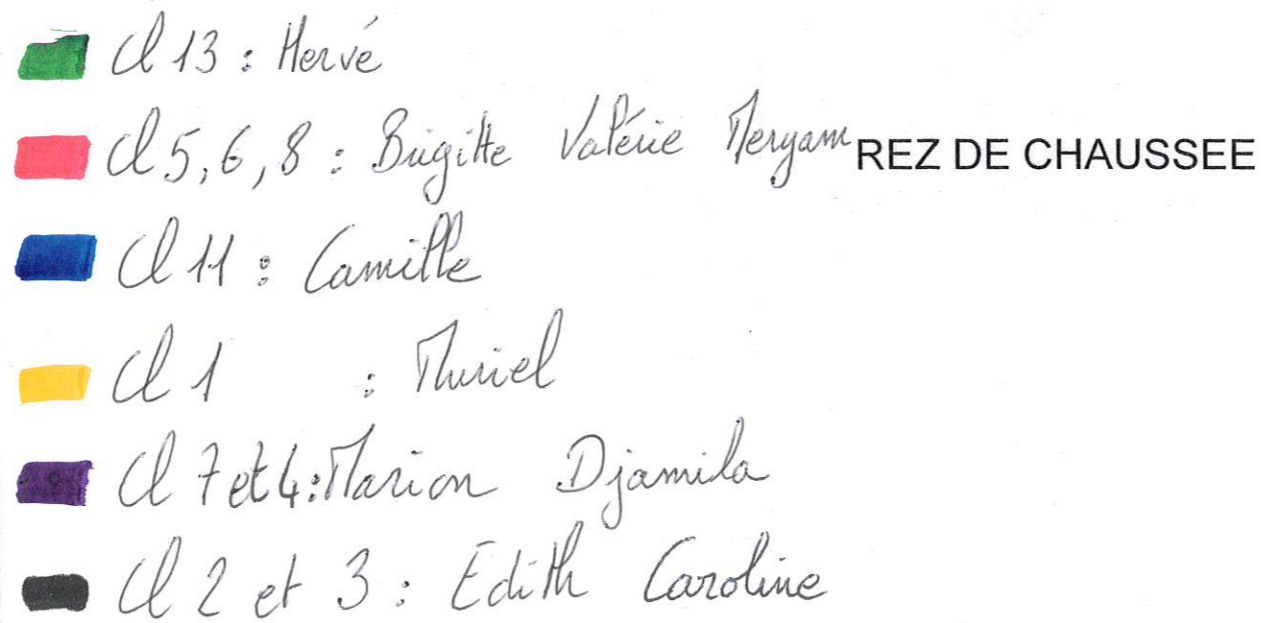 Cl 13 : Hervé
Cl 5, 6, 8 : Brigitte Valérie Meryam REZ DE CHAUSSEE
Cl 11 : Camille
Cl 1 : Muriel
Cl 7 et 4 : Marion Djamila
Cl 2 et 3 : Edith Caroline